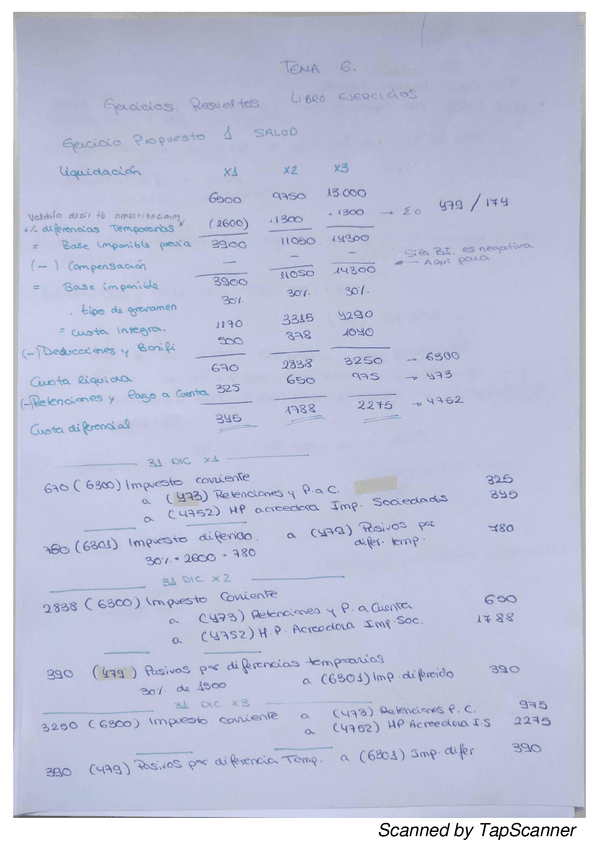 TEMA 6.
Ejercicios Resueltos LIBRO EJERCICIOS
Ejercicio Propuesto 1 SALUD
Liquidación X1 X2 X3
6500 9750 13.000
+/- diferencias Temporarias (2600) .1300 .1300 → 479 / 174
= Base imponible previa 3900 11050 14300
(-) Compensación – – – Si la B.I. es negativa
Aquí para
= Base imponible 3900 11050 14300
. tipo de gravamen 30% 30% 30%.
= cuota integra. 1170 3315 4290
(-) Deducciones y Bonifi 500 378 1040
Cuota liquida 670 2838 3250 → 6300
(-) Retenciones y Pago a Cuenta 325 650 975 → 473
Cuota diferencial 345 1788 2275 → 4752
31 DIC X1
670 (6300) Impuesto corriente
a (473) Retenciones y P. a C. 325
a (4752) HP acreedora Imp. Sociedads 345
780 (6301) Impuesto diferido. a (479) Pasivos por 780
difer. temp.
30% · 2600 = 780
31 DIC X2
2838 (6300) Impuesto Corriente
a (473) Retenciones y P. a Cuenta 650
a (4752) H.P. Acreedora Imp. Soc. 1788
390 (479) Pasivos por diferencias temporarias
30% de 1300 a (6301) Imp. diferido 390
31 DIC X3
3250 (6300) Impuesto corriente a (473) Retenciones P.C. 975
a (4752) HP Acreedora I.S 2275
390 (479) Pasivos por diferencia Temp. a (6301) Imp. difer 390
Scanned by TapScanner